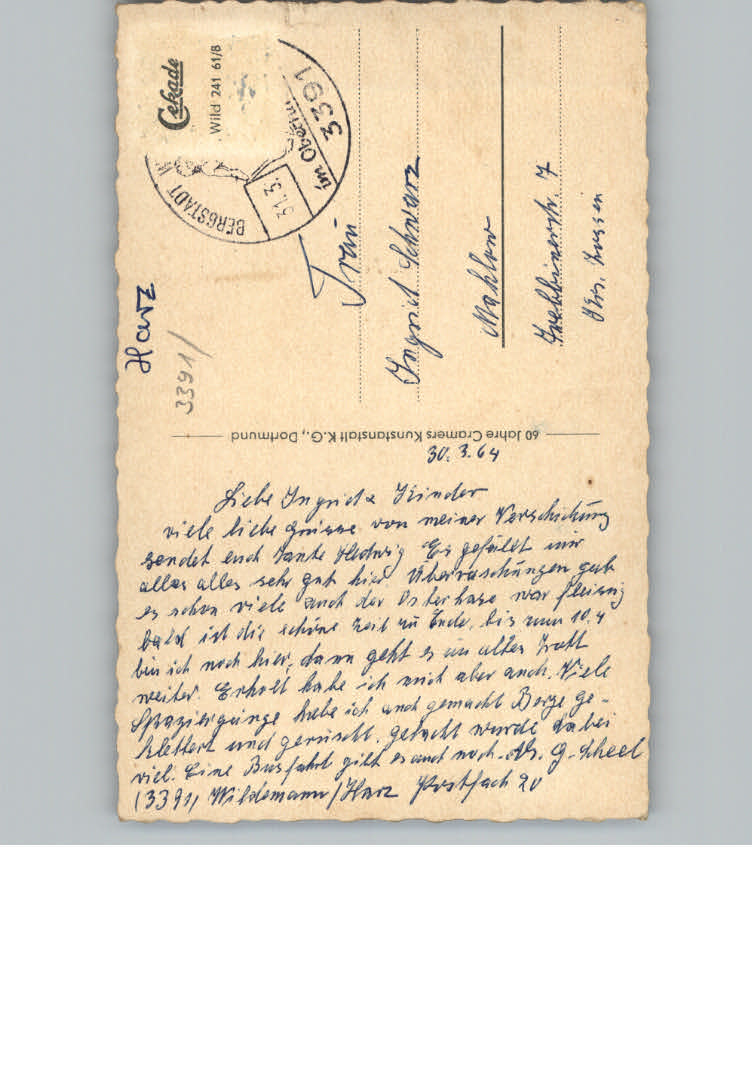 Cekade
Wild 241 61/8
3391
im Oberha
31.3.
BERGSTADT
Harz
3391/
Frau
Ingrid Schwarz
Mahlow
Trebbinerstr. 7
Krs. Zossen
60 Jahre Cramers Kunstanstalt K.G., Dortmund
30.3.64
Liebe Ingrid & Kinder
viele liebe grüsse von meiner Verschickung
sendet euch Tante Hedwig Es gefällt mir
alles alles sehr gut hier Überraschungen gab
es schon viele auch der Osterhase war fleissig
bald ist die schöne zeit zu Ende, bis zum 10.4
bin ich noch hier, dann geht es im alten Trott
weiter. Erholt habe ich mich aber auch. Viele
Spaziergänge habe ich auch gemacht Berge ge-
klettert und gerutscht. gelacht wurde dabei
viel. Eine Busfahrt gibt es auch noch. Ab. g. Scheel
(3391) Wildemann/Harz Postfach 20